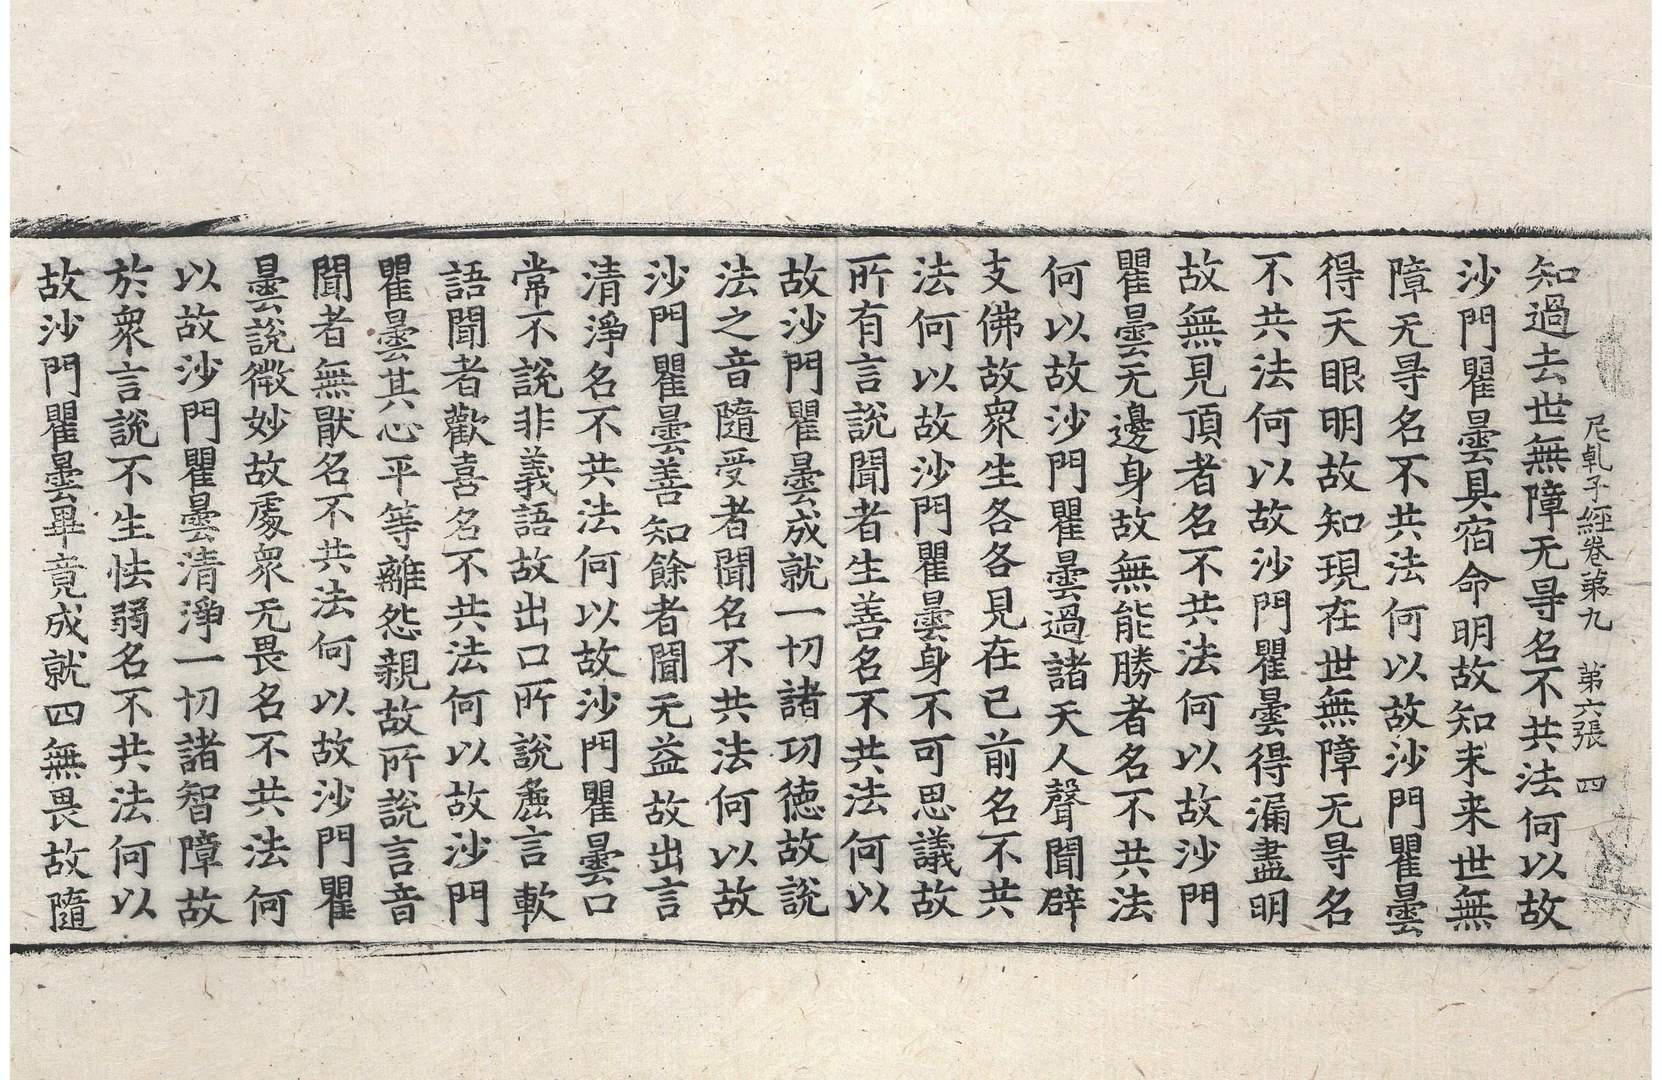 尼乹子經卷第九 第六張 四
知過去世無障无㝵名不共法何以故
沙門瞿曇具宿命明故知未来世無
障无㝵名不共法何以故沙門瞿曇
得天眼明故知現在世無障无㝵名
不共法何以故沙門瞿曇得漏盡明
故無見頂者名不共法何以故沙門
瞿曇无邊身故無能勝者名不共法
何以故沙門瞿曇過諸天人聲聞辟
支佛故衆生各各見在已前名不共
法何以故沙門瞿曇身不可思議故
所有言說聞者生善名不共法何以
故沙門瞿曇成就一切諸功德故說
法之音隨受者聞名不共法何以故
沙門瞿曇善知餘者聞无益故出言
清淨名不共法何以故沙門瞿曇口
常不說非義語故出口所說麁言軟
語聞者歡喜名不共法何以故沙門
瞿曇其心平等離怨親故所說言音
聞者無猒名不共法何以故沙門瞿
曇說微妙故處衆无畏名不共法何
以故沙門瞿曇清淨一切諸智障故
於衆言說不生怯弱名不共法何以
故沙門瞿曇畢竟成就四無畏故隨